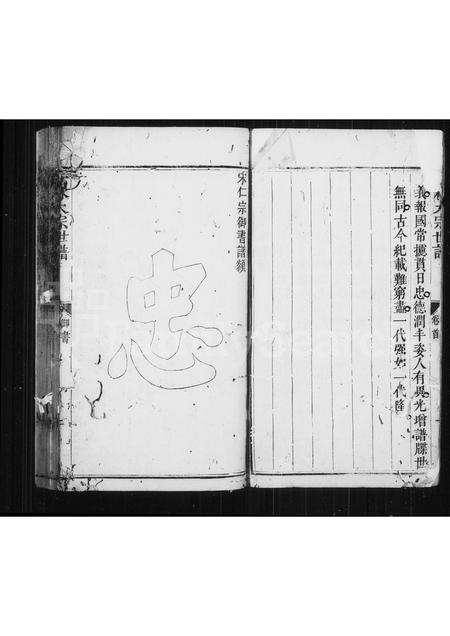 大宗世譜
卷首
義報國常攄貫日忠德潤丰姿人有異光增譜牒世
無同古今紀載難窮盡一代強如一代隆
宋仁宗御書譜額
忠
大宗世譜
御書